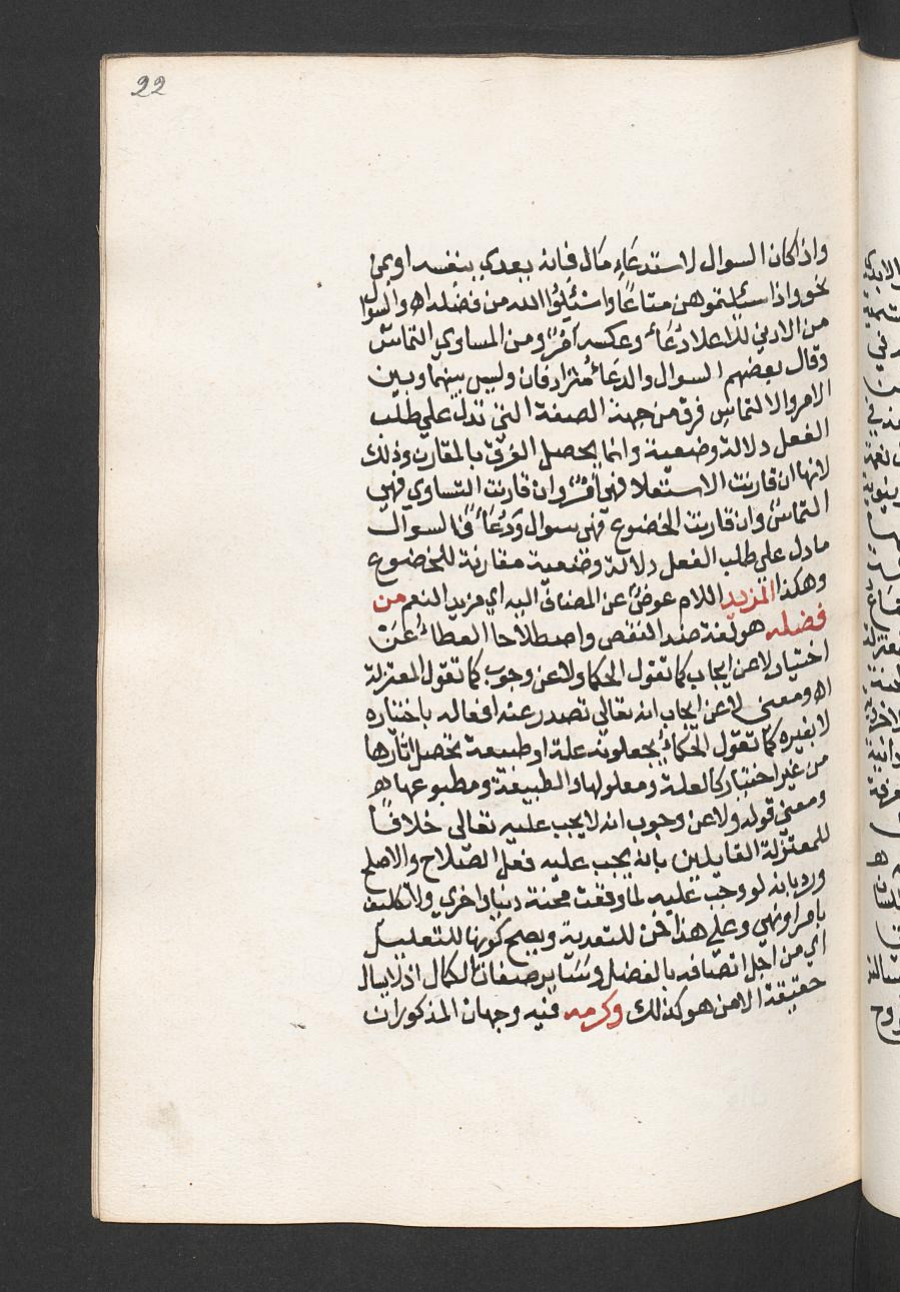 22
واذا كان السوال لاستدعاء مال فانه يعدي بنفسه او بمن
نحو واذا سئلتموهن متاعًا واسئلوا الله من فضله اه والسوال
من الادني للاعلا دعاءٌ وعكسه امرٌ ومن المساوي التماسٌ
وقال بعضهم السوال والدعاءُ مترادفان وليس بينهما وبين
الامر والالتماس فرق من جهة الصيغة التي تدل علي طلب
الفعل دلالة وضعية وانما يحصل الفرق بالمقارن وذلك
لانها ان قارنت الاستعلا فهي امرٌ وان قارنت التساوي فهي
التماسٌ وان قارنت الخضوع فهي سوال ودعاءٌ فالسوال
ما دل علي طلب الفعل دلالة وضعية مقارنة للخضوع
وهكذا المزيد اللام عوضٌ عن المضاف اليه اي مزيد النعم من
فضله هو لغة ضد النقص واصطلاحا العطاءُ عن
اختيار لا عن ايجاب كما تقول الحكما ولا عن وجوب كما تقول المعتزلة
اه ومعني لا عن ايجاب انه تعالي تصدر عنه افعاله باختياره
لا بغيره كما تقول الحكماءُ يجعلونه علة او طبيعة تحصل اثارها
من غير اختيار كالعلة ومعلولها والطبيعة ومطبوعها اه
ومعني قوله ولا عن وجوب انه لا يجب عليه تعالي خلافًا
للمعتزلة القايلين بانه يجب عليه فعل الصلاح والاصلح
ورد بانه لو وجب عليه لما وقعت محنة دنيا واخري ولا تكليف
بامر او نهي وعلي هذا فمن للتعدية ويصح كونها للتعليل
اي من اجل اتصافه بالفضل وسَاير صفات الكمال اذ لا يسال
حقيقة الا من هو كذلك وكرمه فيه وجهان المذكوران